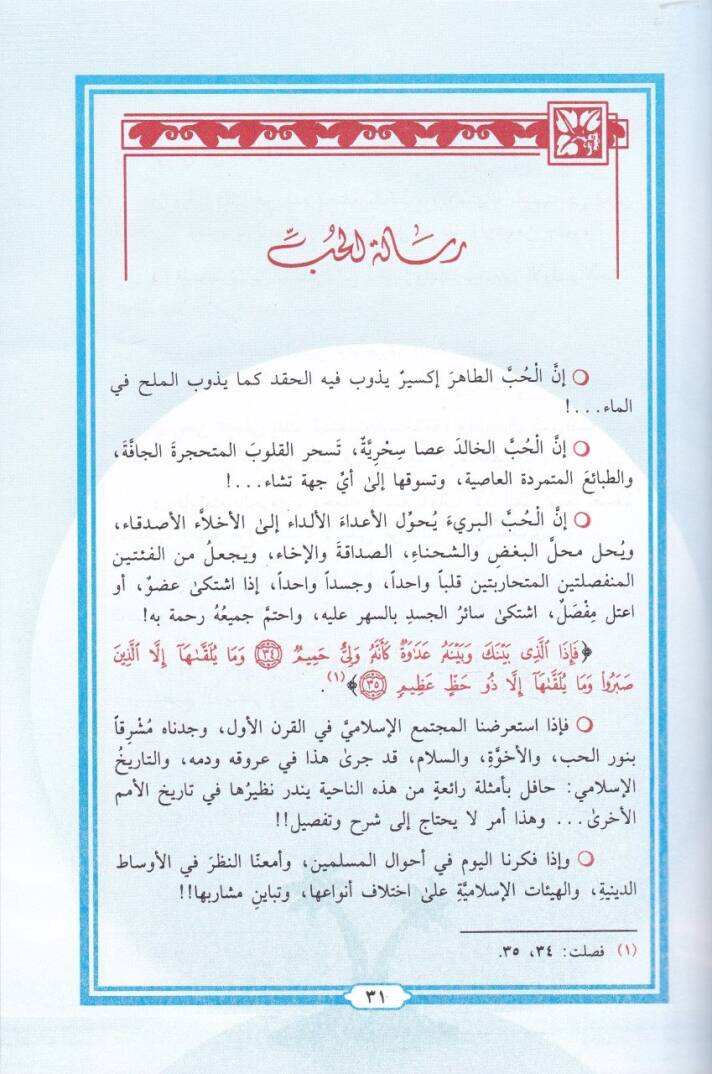 رسالة الحُبِّ
إنَّ الْحُبَّ الطاهرَ إكسيرٌ يذوب فيه الحقد كما يذوب الملح في
الماء...!
إنَّ الْحُبَّ الخالدَ عصا سِحْرِيَّةٌ، تَسحر القلوبَ المتحجرةَ الجافَّةَ،
والطبائعَ المتمردة العاصية، وتسوقها إلىٰ أيِّ جهة تشاء...!
إنَّ الْحُبَّ البريءَ يُحوِّل الأعداءَ الألداء إلىٰ الأخلاَّء الأصدقاء،
ويُحل محلَّ البغضِ والشحناءِ، الصداقةَ والإخاء، ويجعلُ من الفئتين
المنفصلتين المتحاربتين قلباً واحداً، وجسداً واحداً، إذا اشتكىٰ عضوٌ، أو
اعتل مِفْصَلٌ، اشتكىٰ سائرُ الجسدِ بالسهر عليه، واحتمَّ جميعُهُ رحمة به!
﴿فَإِذَا ٱلَّذِى بَيْنَكَ وَبَيْنَهُۥ عَدَٰوَةٌ كَأَنَّهُۥ وَلِىٌّ حَمِيمٌ ۝٣٤ وَمَا يُلَقَّىٰهَآ إِلَّا ٱلَّذِينَ
صَبَرُوا۟ وَمَا يُلَقَّىٰهَآ إِلَّا ذُو حَظٍّ عَظِيمٍ ۝٣٥﴾(١).
فإذا استعرضنا المجتمع الإسلاميَّ في القرن الأول، وجدناه مُشْرِقاً
بنور الحب، والأخوَّةِ، والسلام، قد جرىٰ هذا في عروقه ودمه، والتاريخُ
الإسلامي: حافل بأمثلة رائعةٍ من هذه الناحية يندر نظيرُها في تاريخ الأمم
الأخرىٰ... وهذا أمر لا يحتاج إلى شرح وتفصيل!!
وإذا فكرنا اليوم في أحوال المسلمين، وأمعنّا النظرَ في الأوساط
الدينيةِ، والهيئات الإسلاميَّةِ علىٰ اختلاف أنواعها، وتباينِ مشاربها!!
(١) فصلت: ٣٤، ٣٥.
٣١